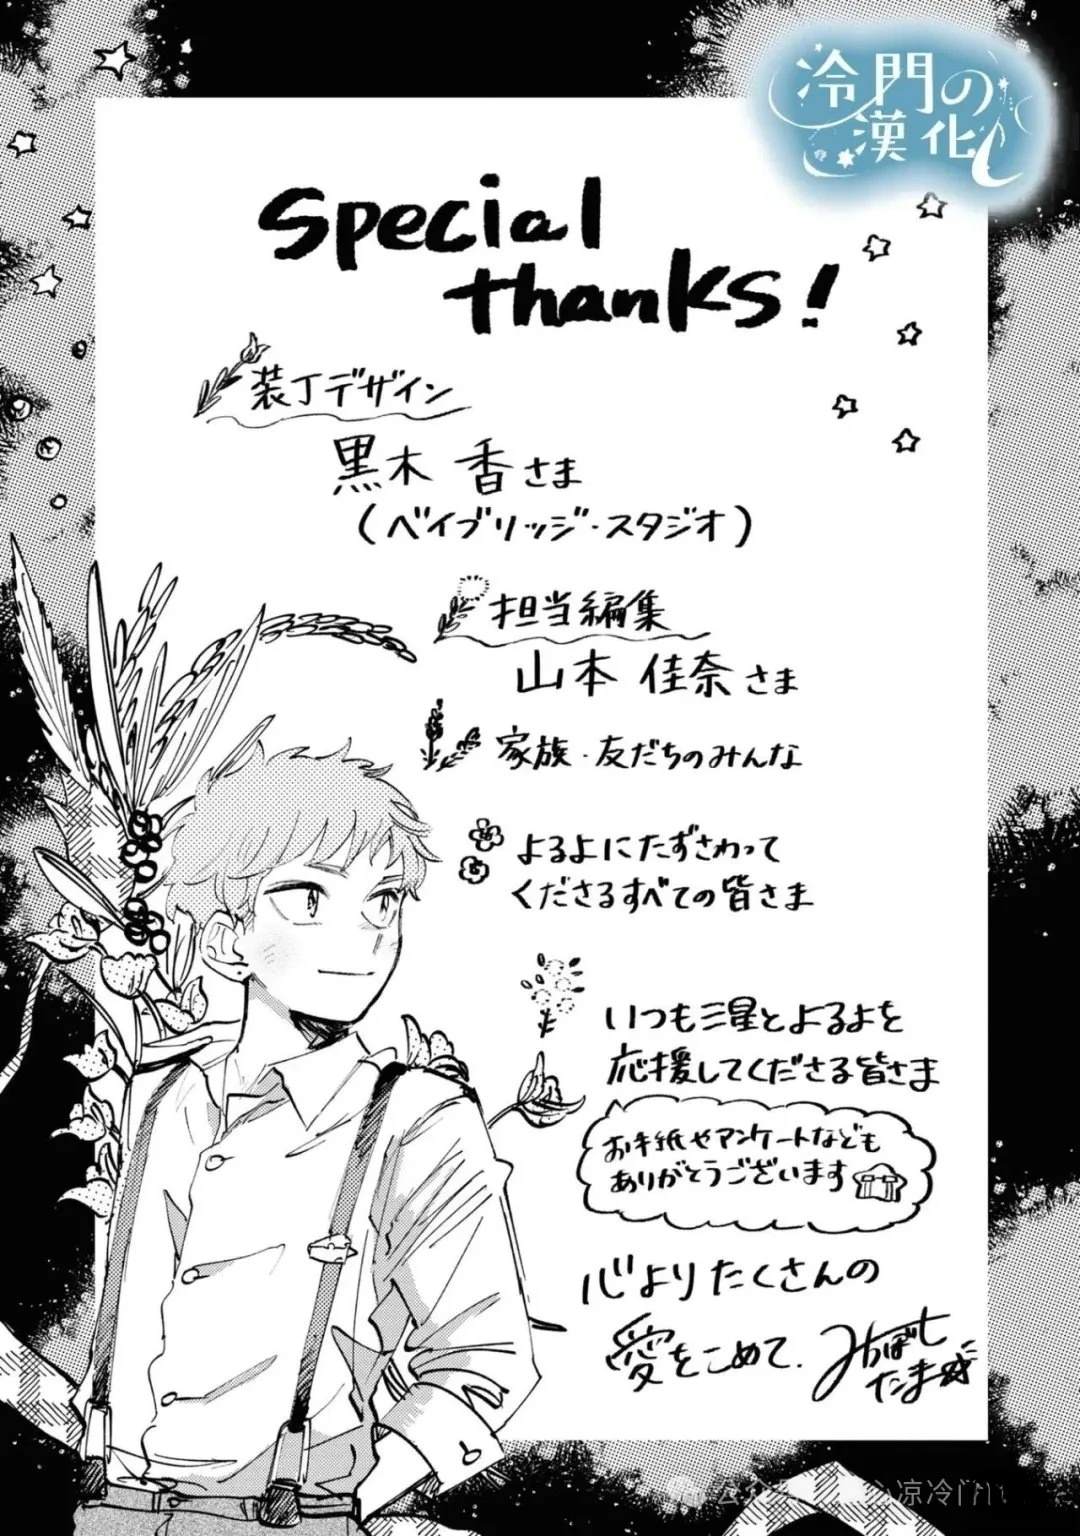 冷門の
漢化
Special
thanks!
装丁デザイン
黒木 香さま
(ベイブリッジ・スタジオ)
担当編集
山本 佳奈さま
家族・友だちのみんな
よるよにたずさわって
くださるすべての皆さま
いつも三星とよるよを
応援してくださる皆さま
お手紙やアンケートなども
ありがとうございます
心よりたくさんの
愛をこめて.
みかぼし
たま
凉冷门